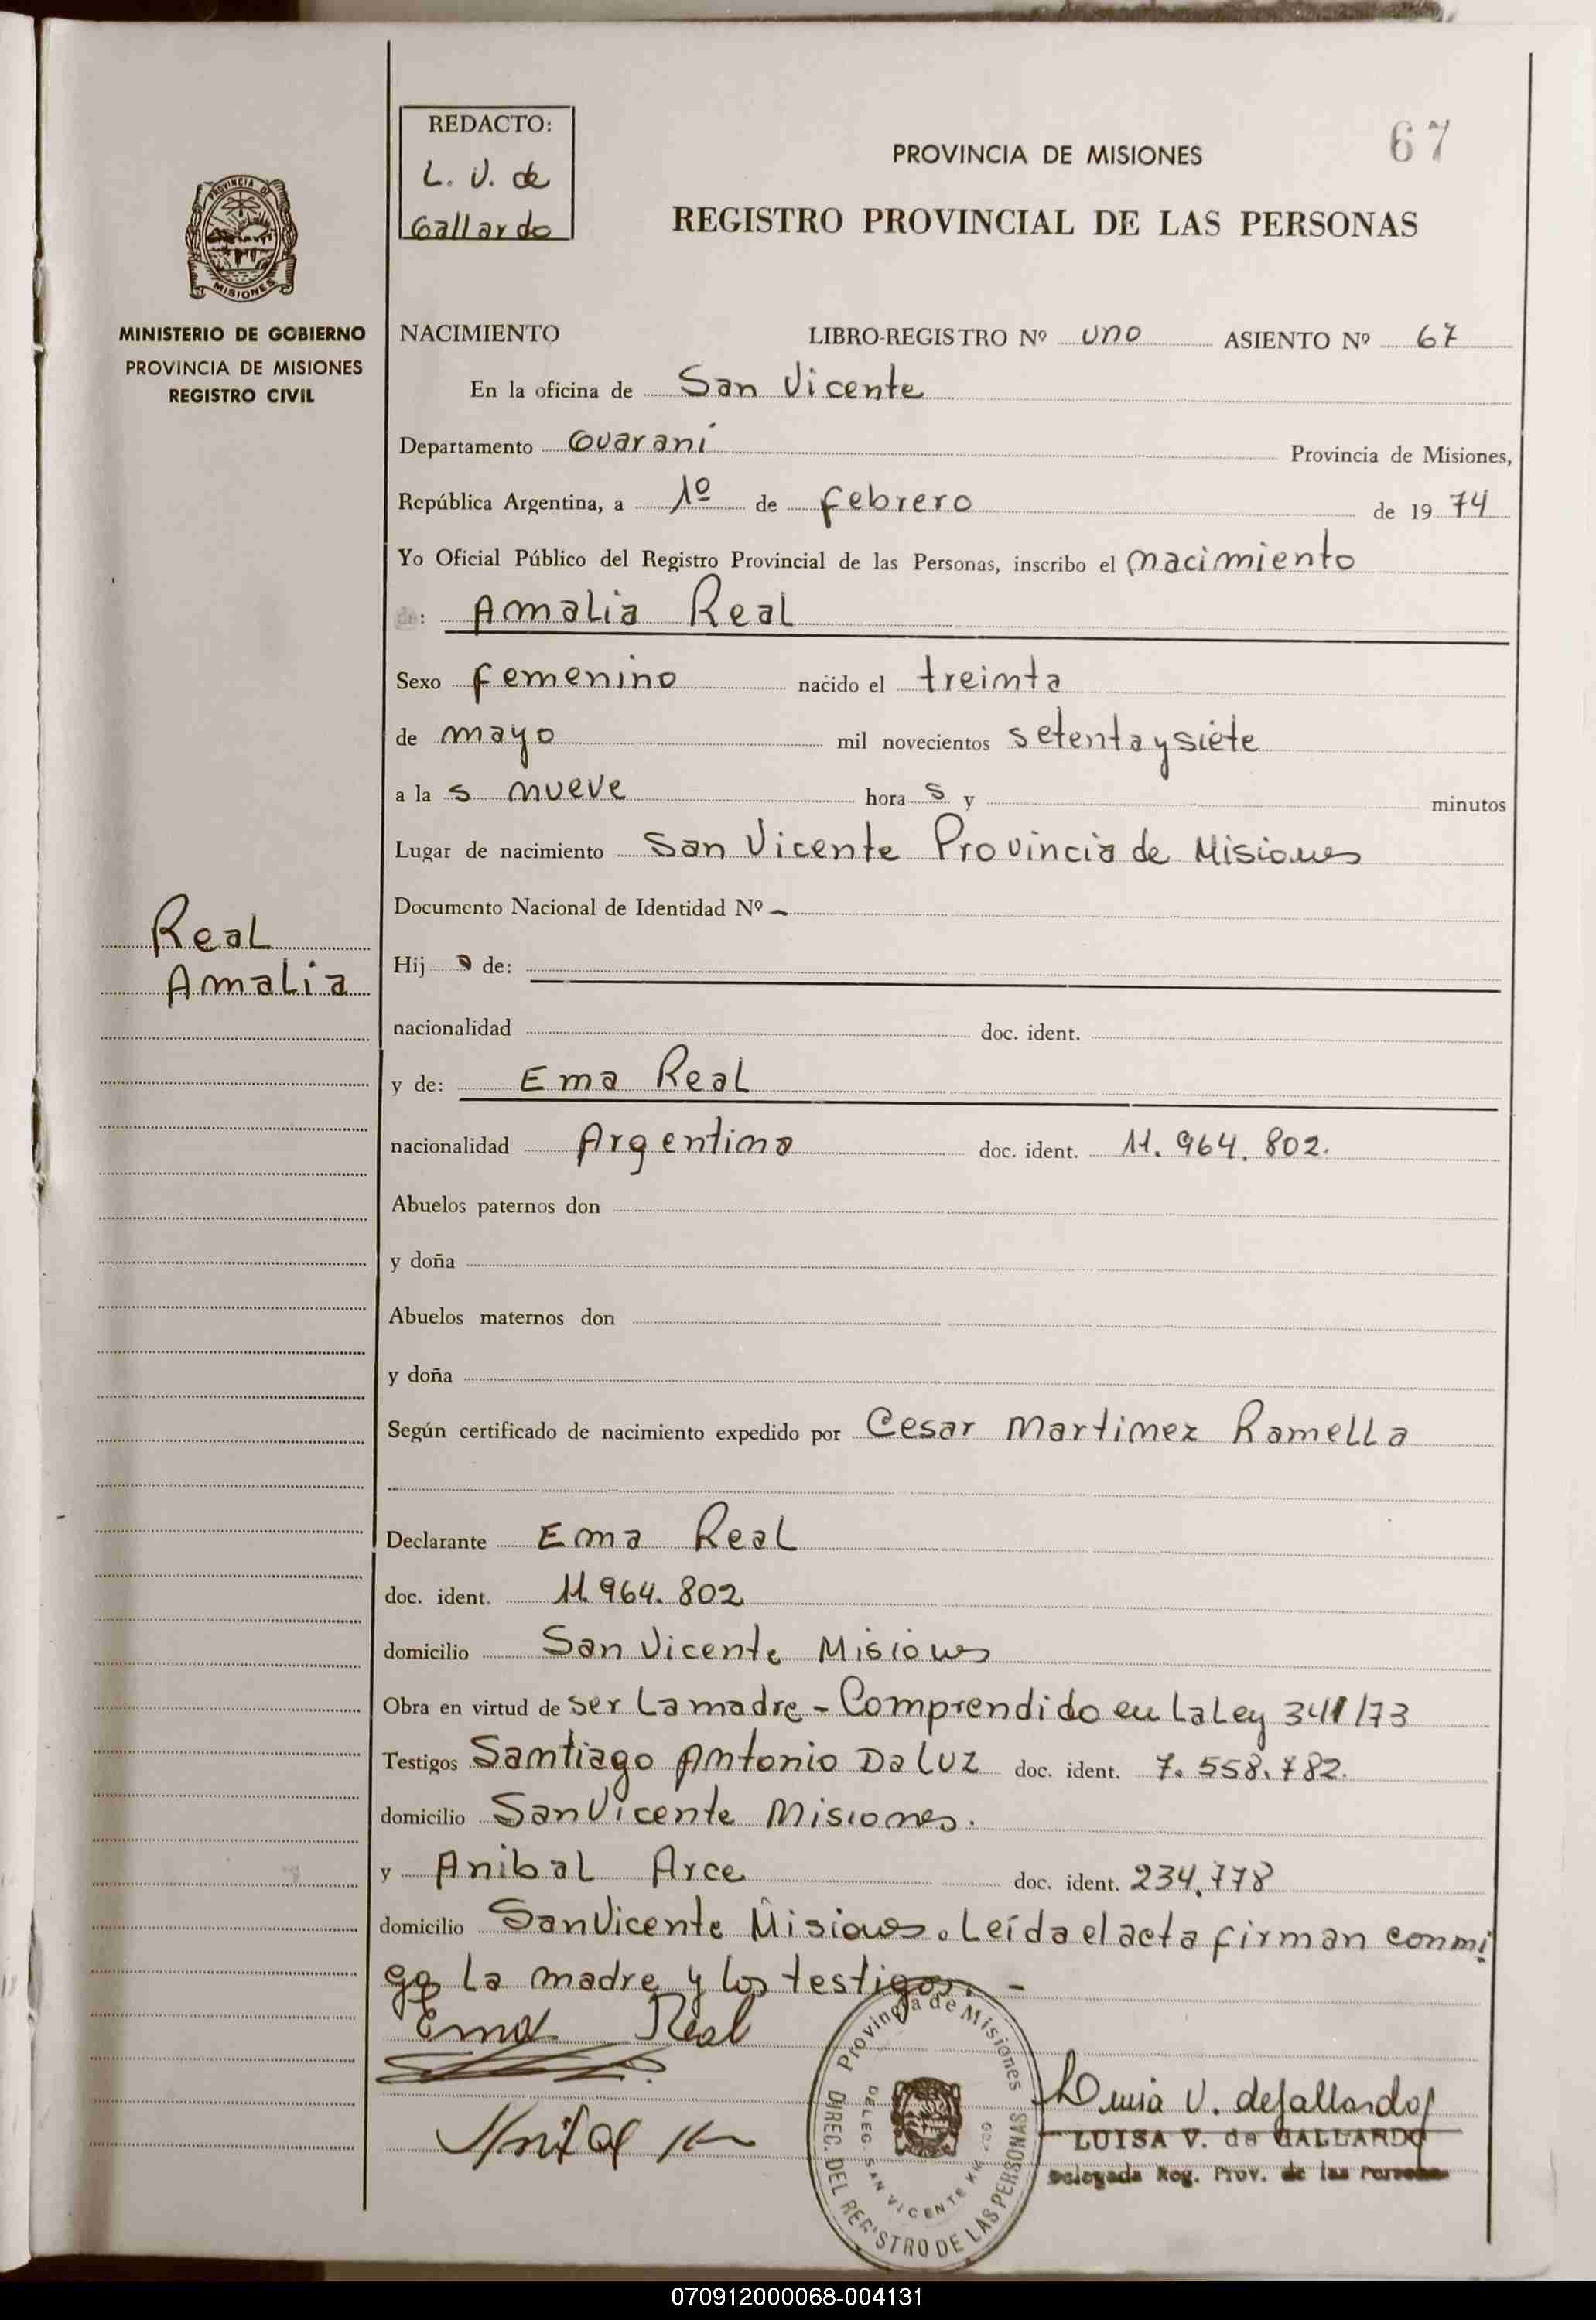 REDACTO:
L. V. de
Gallardo
67
PROVINCIA DE MISIONES
REGISTRO PROVINCIAL DE LAS PERSONAS
PROVINCIA D
MISIONES
MINISTERIO DE GOBIERNO
PROVINCIA DE MISIONES
REGISTRO CIVIL
NACIMIENTO LIBRO-REGISTRO Nº uno ASIENTO Nº 67
En la oficina de San Vicente
Departamento Guaraní Provincia de Misiones,
República Argentina, a 1º de febrero de 1974
Yo Oficial Público del Registro Provincial de las Personas, inscribo el nacimiento
de: Amalia Real
Sexo femenino nacido el treinta
de mayo mil novecientos setenta y siete
a la s nueve hora s y minutos
Lugar de nacimiento San Vicente Provincia de Misiones
Documento Nacional de Identidad Nº -
Real
Amalia
Hij a de:
nacionalidad doc. ident.
y de: Ema Real
nacionalidad Argentina doc. ident. 11.964.802.
Abuelos paternos don
y doña
Abuelos maternos don
y doña
Según certificado de nacimiento expedido por Cesar Martinez Ramella
Declarante Ema Real
doc. ident. 11.964.802
domicilio San Vicente Misiones
Obra en virtud de ser la madre - Comprendido en la Ley /73
Testigos Santiago Antonio Da Luz doc. ident. 7.558.782.
domicilio San Vicente Misiones.
y Anibal Arce doc. ident. 234.778
domicilio San Vicente Misiones. Leída el acta firman conmi
go la madre y los testigos. -
Ema Real
Provincia de Misiones
DIREC. DEL REGISTRO DE LAS PERSONAS
DELEG. SAN VICENTE KM
Luisa V. de Gallardo
LUISA V. de GALLARDO
Delegada Reg. Prov. de las Personas
070912000068-004131